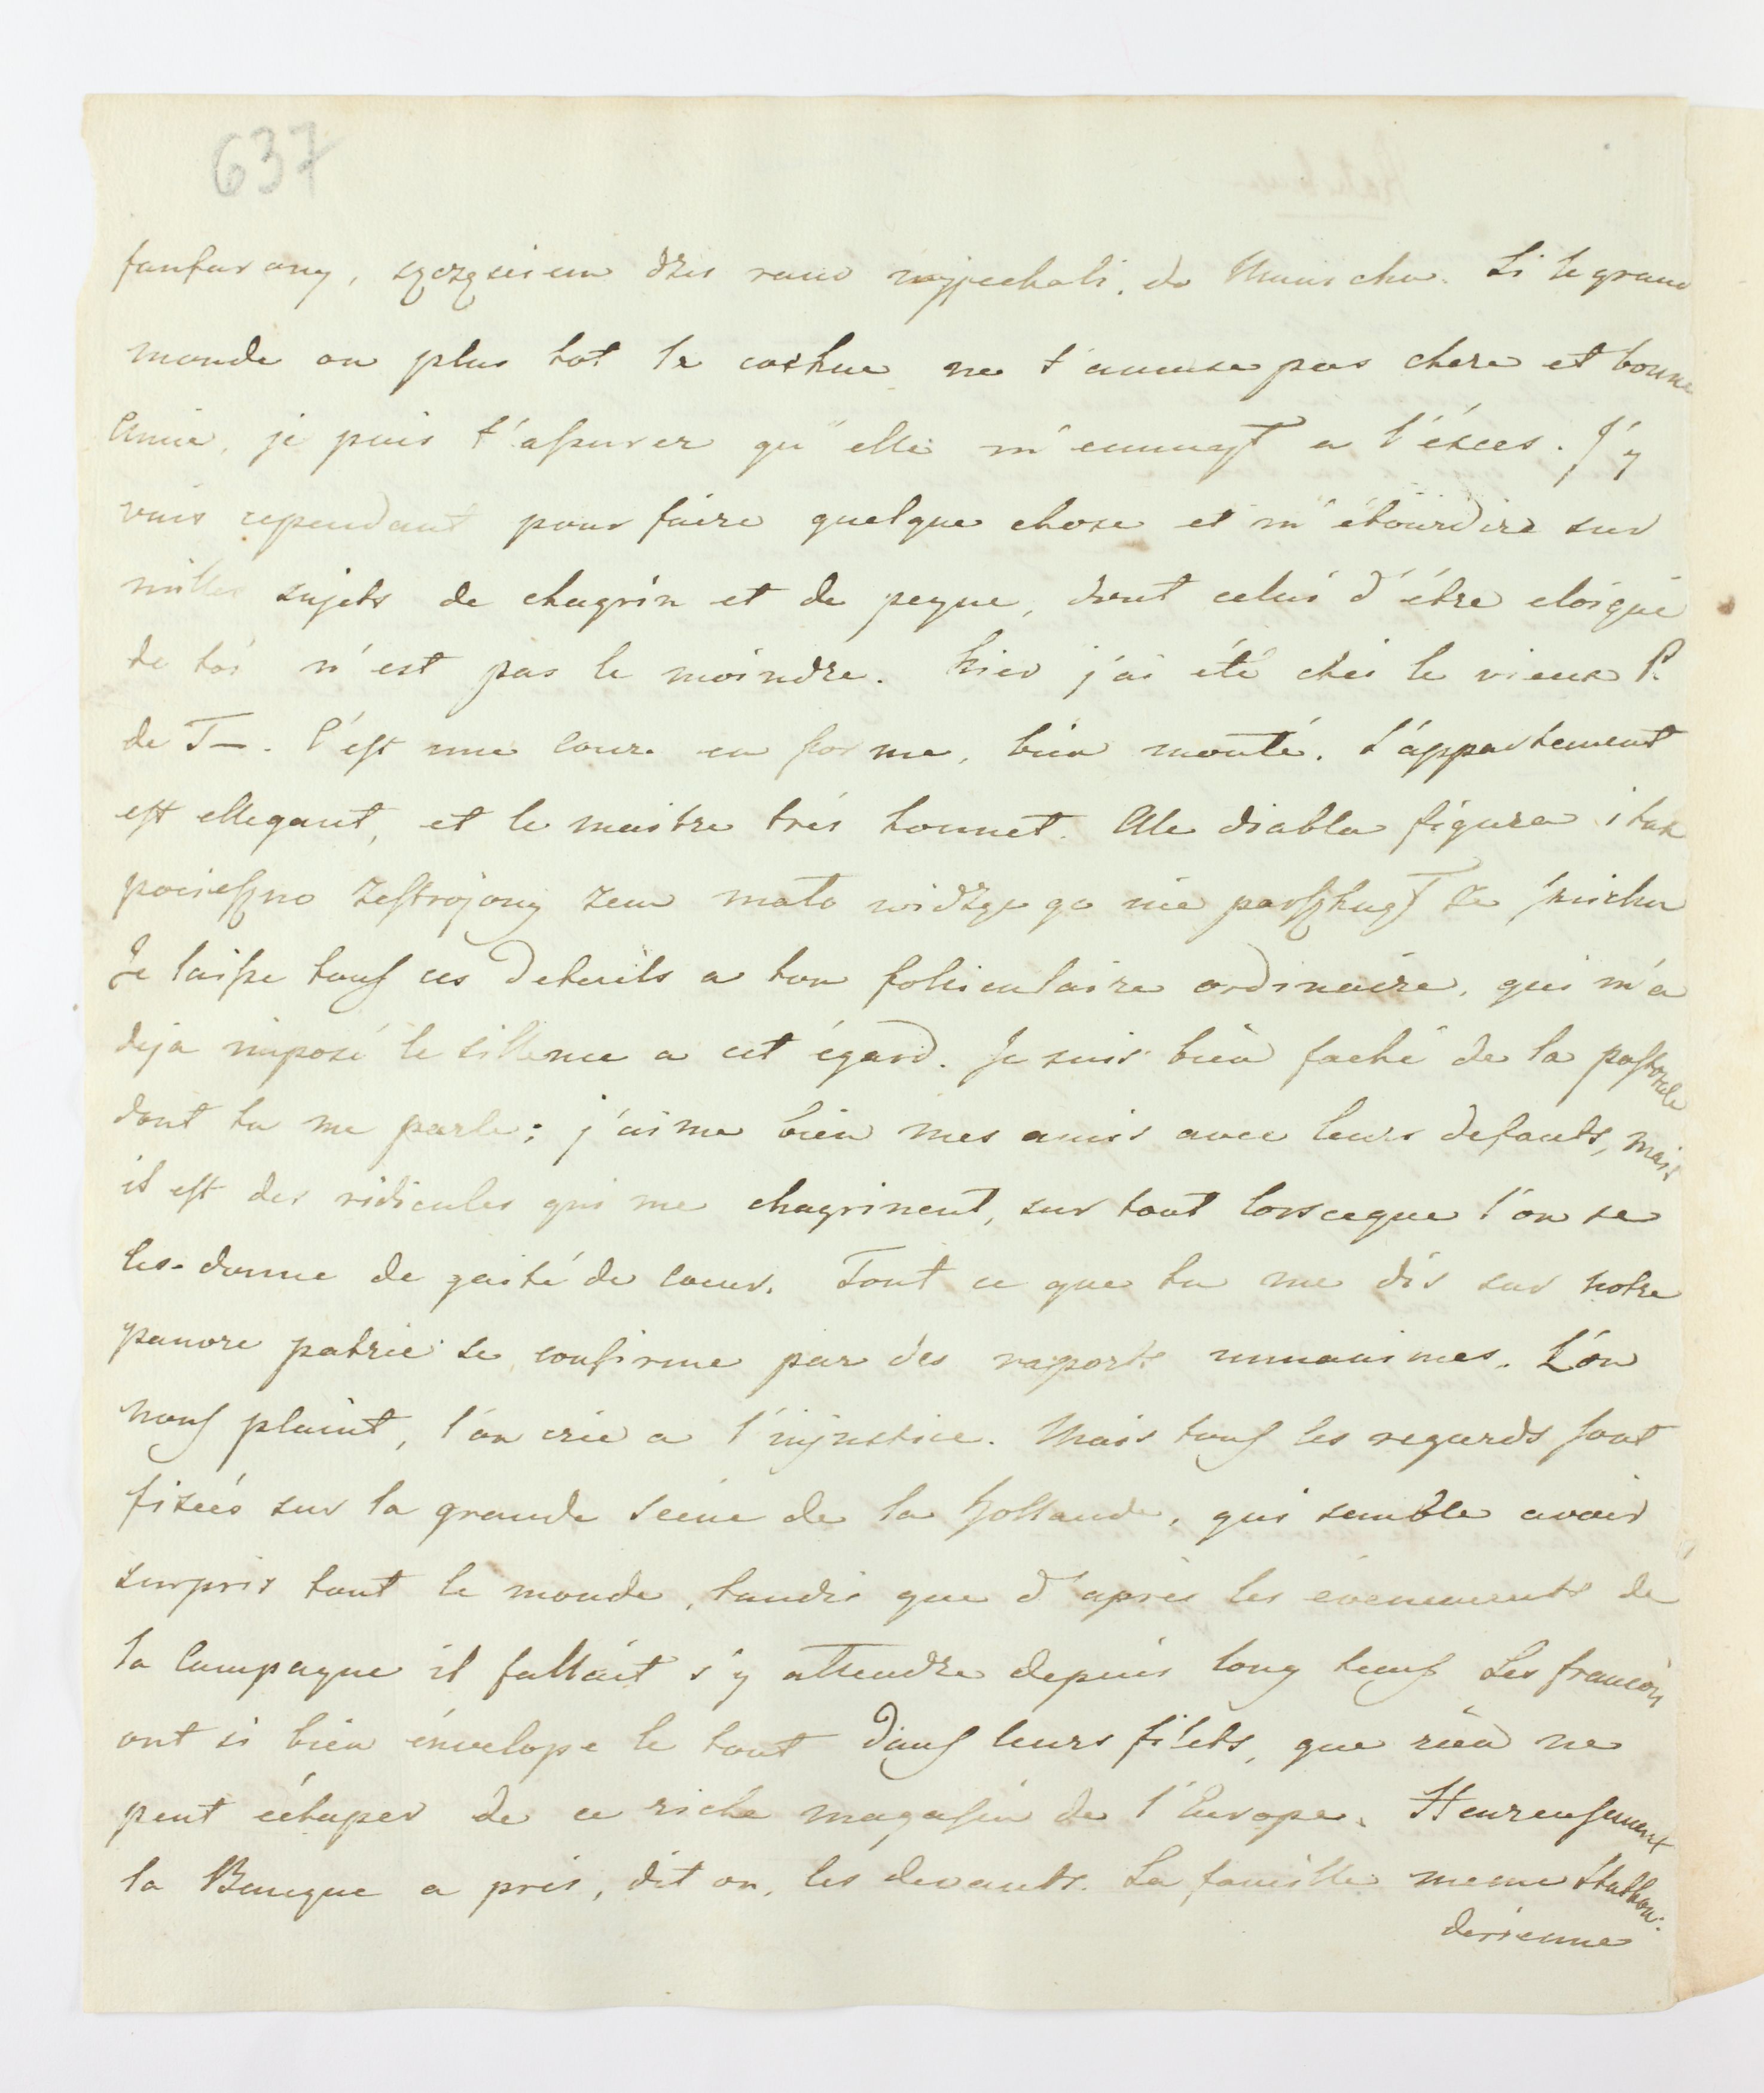 637
fanfarony, szczęsciem dzis rano wyjechali do Munichu. Si le grand
monde ou plus tot la cochue ne t'amuse pas chere et bonne
Amie, je puis t'assurer qu'elle m'ennuyt a l'éxces. J'y
vais cependant pour faire quelque chose et m'étourdire sur
milles sujets de chagrin et de peyne, dont celui d'étre eloigné
de toi n'est pas le moindre. Hier j'ai été chés le vieux P.
de T—. C'est une Cour en forme, bien monté. L'appartement
est ellegant, et le maitre trés honnet. Ale diabla figura i tak
pocieszno zestrojony zem mało widząc go nie parszknął ze smichu
Je laisse tous ces details a ton folliculaire ordinaire, qui m'a
deja imposé le sillence a cet égard. Je suis bien faché de la pastorale
dont tu me parle; j'aime bien mes amis avec leurs defauts, mais
il est des ridicules qui me chagrinent, sur tout lorsceque l'on se
les donne de gaité de Coeur. Tout ce que tu me dis sur notre
pauvre patrie se confirme par des raports unnanimes. L'on
nous plaint, l'on crie a l'injustice. Mais tous les regards sont
fixées sur la grande Scene de la Hollande, qui semble avoir
surpris tout le monde, tandis que d'aprés les évenements de
la Campagne il fallait s'y attendre depuis long tems Les francois
ont si bien énvelope le tout dans leurs filets, que rien ne
peut échaper de ce riche magasin de l'Europe. Heureusement
la Banque a pris, dit on, les devants. La famille meme Stathou:
derienne